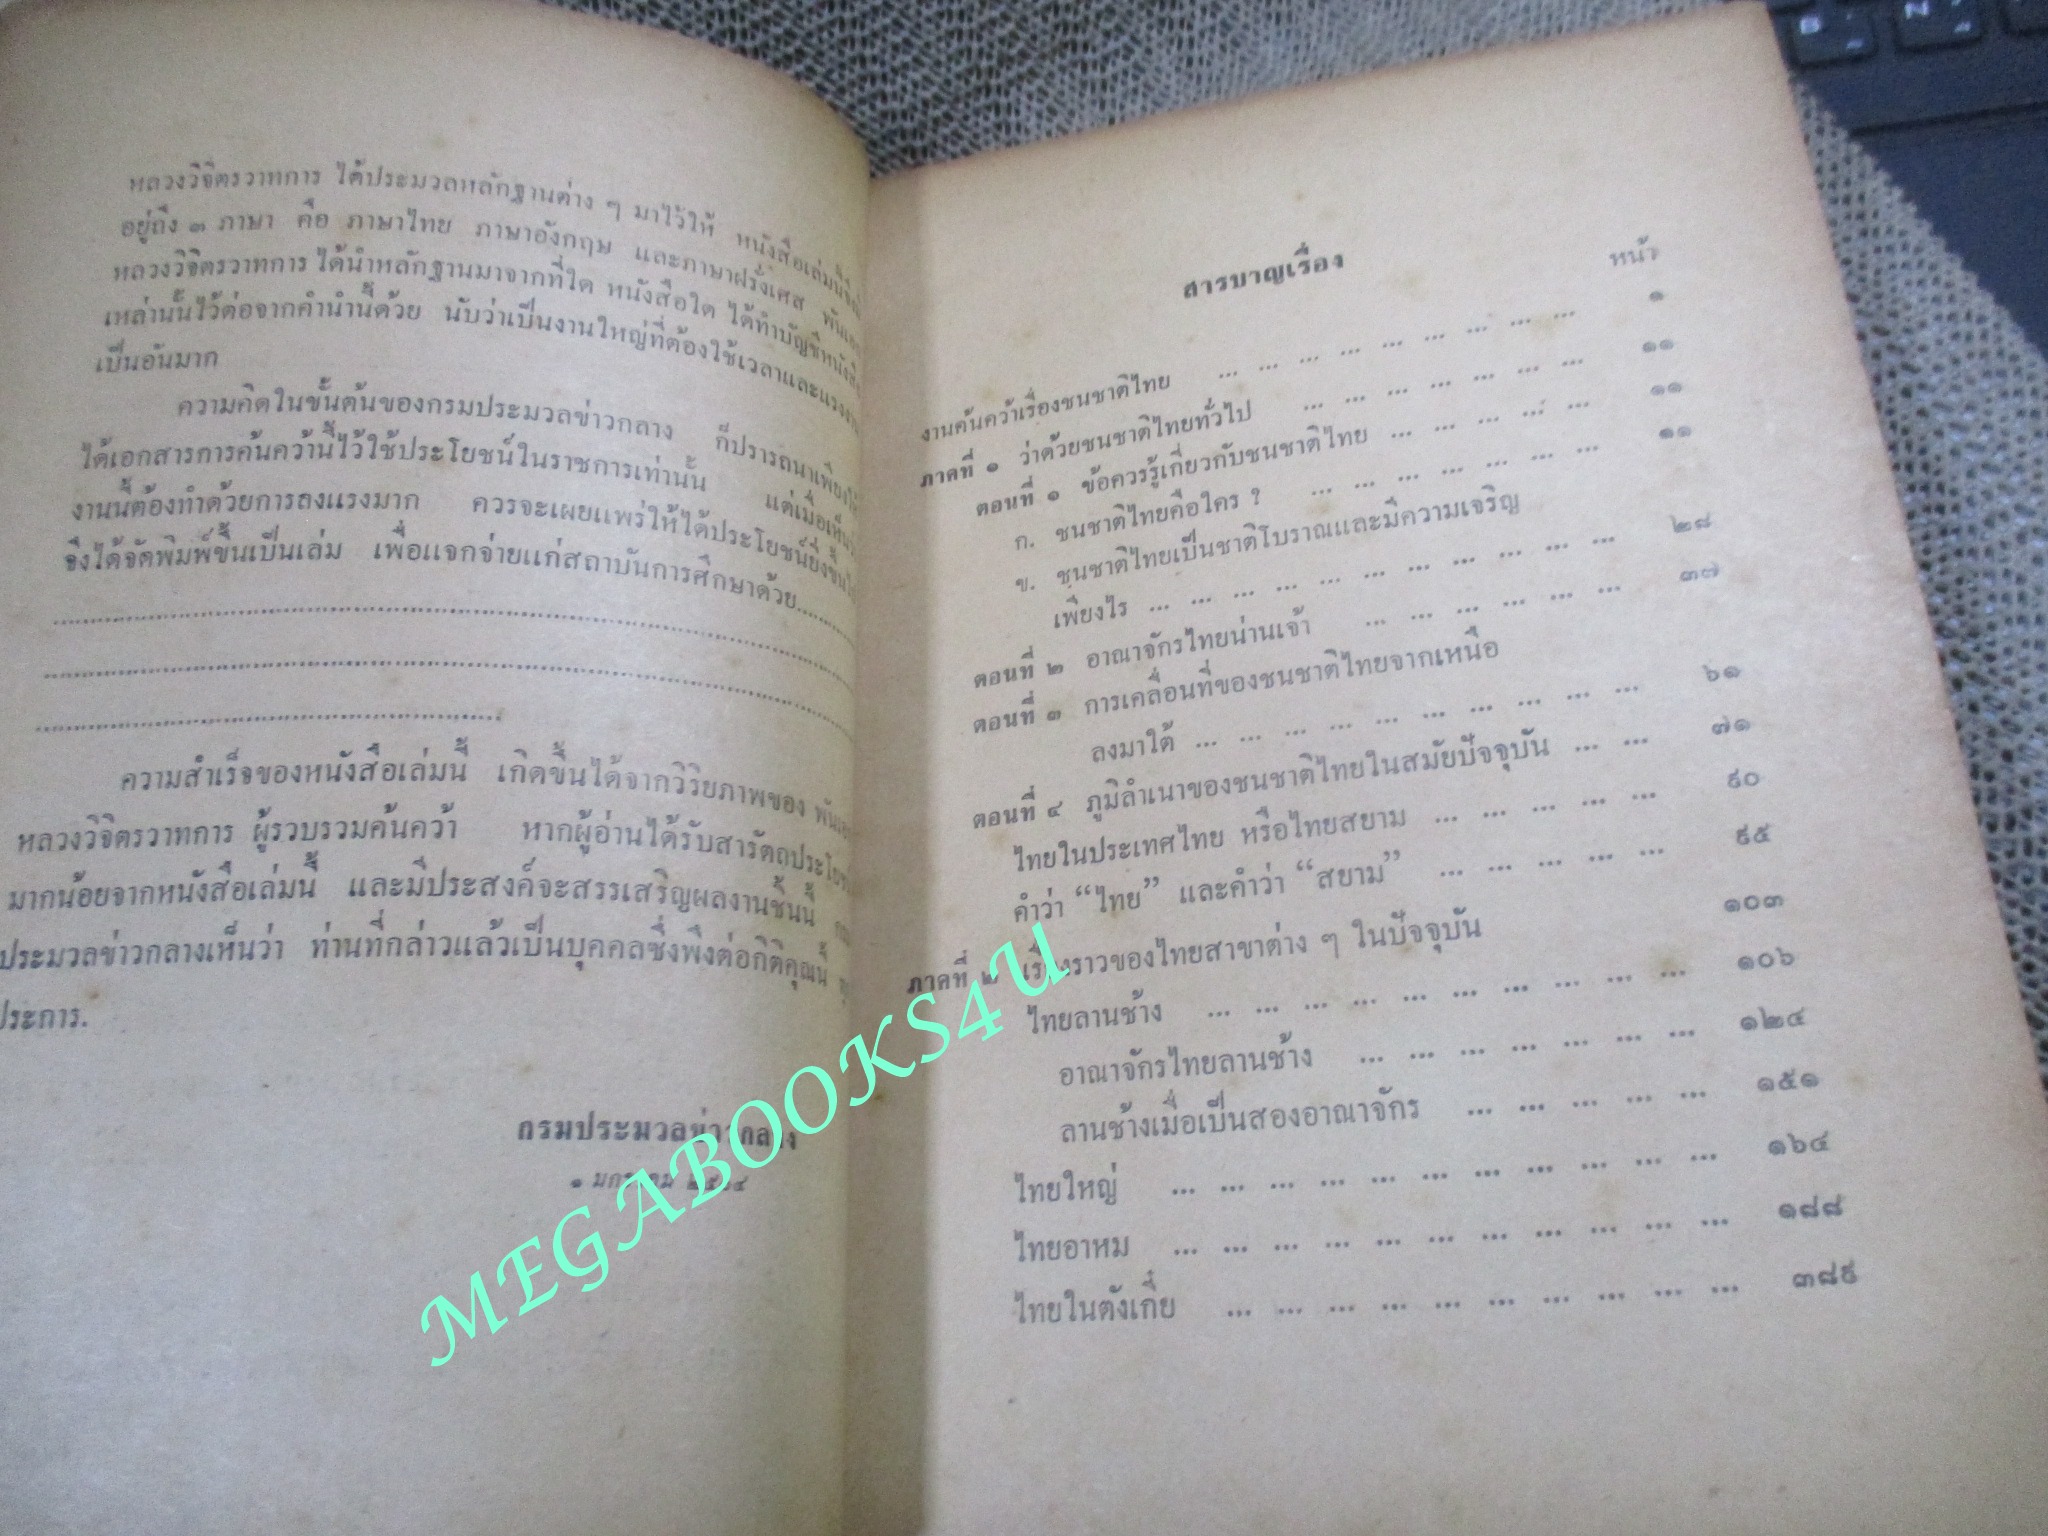 หลวงวิจิตรวาทการ ได้ประมวลหลักฐานต่าง ๆ มาไว้ให้ หนังสือเล่มนี้
อยู่ถึง ๓ ภาษา คือ ภาษาไทย ภาษาอังกฤษ และภาษาฝรั่งเศส
หลวงวิจิตรวาทการ ได้นำหลักฐานมาจากที่ใด หนังสือใด ได้ทำบัญชีหนังสือ
เหล่านั้นไว้ต่อจากคำนำนี้ด้วย นับว่าเป็นงานใหญ่ที่ต้องใช้เวลาและแรงงาน
เป็นอันมาก
ความคิดในขั้นต้นของกรมประมวลข่าวกลาง ก็ปรารถนาเพียงให้
ได้เอกสารการค้นคว้านี้ไว้ใช้ประโยชน์ในราชการเท่านั้น แต่เมื่อเห็น
งานนี้ต้องทำด้วยการลงแรงมาก ควรจะเผยแพร่ให้ได้ประโยชน์ยิ่งขึ้น
จึงได้จัดพิมพ์ขึ้นเป็นเล่ม เพื่อแจกจ่ายแก่สถาบันการศึกษาด้วย..........
ความสำเร็จของหนังสือเล่มนี้ เกิดขึ้นได้จากวิริยภาพของ
หลวงวิจิตรวาทการ ผู้รวบรวมค้นคว้า หากผู้อ่านได้รับสารัตถประโยชน์
มากน้อยจากหนังสือเล่มนี้ และมีประสงค์จะสรรเสริญผลงานชิ้นนี้
ประมวลข่าวกลางเห็นว่า ท่านที่กล่าวแล้วเป็นบุคคลซึ่งพึงต่อกิติคุณนี้
ประการ.
กรมประมวลข่าวกลาง
๑ มกราคม
สารบาญเรื่อง
หน้า
งานค้นคว้าเรื่องชนชาติไทย ... ... ... ... ... ... ... ... ... ๑
ภาคที่ ๑ ว่าด้วยชนชาติไทยทั่วไป ... ... ... ... ... ... ... ๑๑
ตอนที่ ๑ ข้อควรรู้เกี่ยวกับชนชาติไทย ... ... ... ... ... ๑๑
ก. ชนชาติไทยคือใคร ? ... ... ... ... ... ... ... ๑๑
ข. ชนชาติไทยเป็นชาติโบราณและมีความเจริญ
เพียงไร ... ... ... ... ... ... ... ... ... ... ... ๒๘
ตอนที่ ๒ อาณาจักรไทยน่านเจ้า ... ... ... ... ... ... ๓๗
ตอนที่ ๓ การเคลื่อนที่ของชนชาติไทยจากเหนือ
ลงมาใต้ ... ... ... ... ... ... ... ... ... ... ๖๑
ตอนที่ ๔ ภูมิลำเนาของชนชาติไทยในสมัยปัจจุบัน ... ... ๗๑
ไทยในประเทศไทย หรือไทยสยาม ... ... ... ... ... ๙๐
คำว่า “ไทย” และคำว่า “สยาม” ... ... ... ... ... ๙๕
ภาคที่ ๒ เรื่องราวของไทยสาขาต่าง ๆ ในปัจจุบัน ๑๐๓
ไทยลานช้าง ... ... ... ... ... ... ... ... ... ... ๑๐๖
อาณาจักรไทยลานช้าง ... ... ... ... ... ... ... ๑๒๔
ลานช้างเมื่อเป็นสองอาณาจักร ... ... ... ... ... ๑๕๑
ไทยใหญ่ ... ... ... ... ... ... ... ... ... ... ... ๑๖๔
ไทยอาหม ... ... ... ... ... ... ... ... ... ... ... ๑๘๘
ไทยในตังเกี๋ย ... ... ... ... ... ... ... ... ... ... ๓๘๙
MEGABOOKS4U